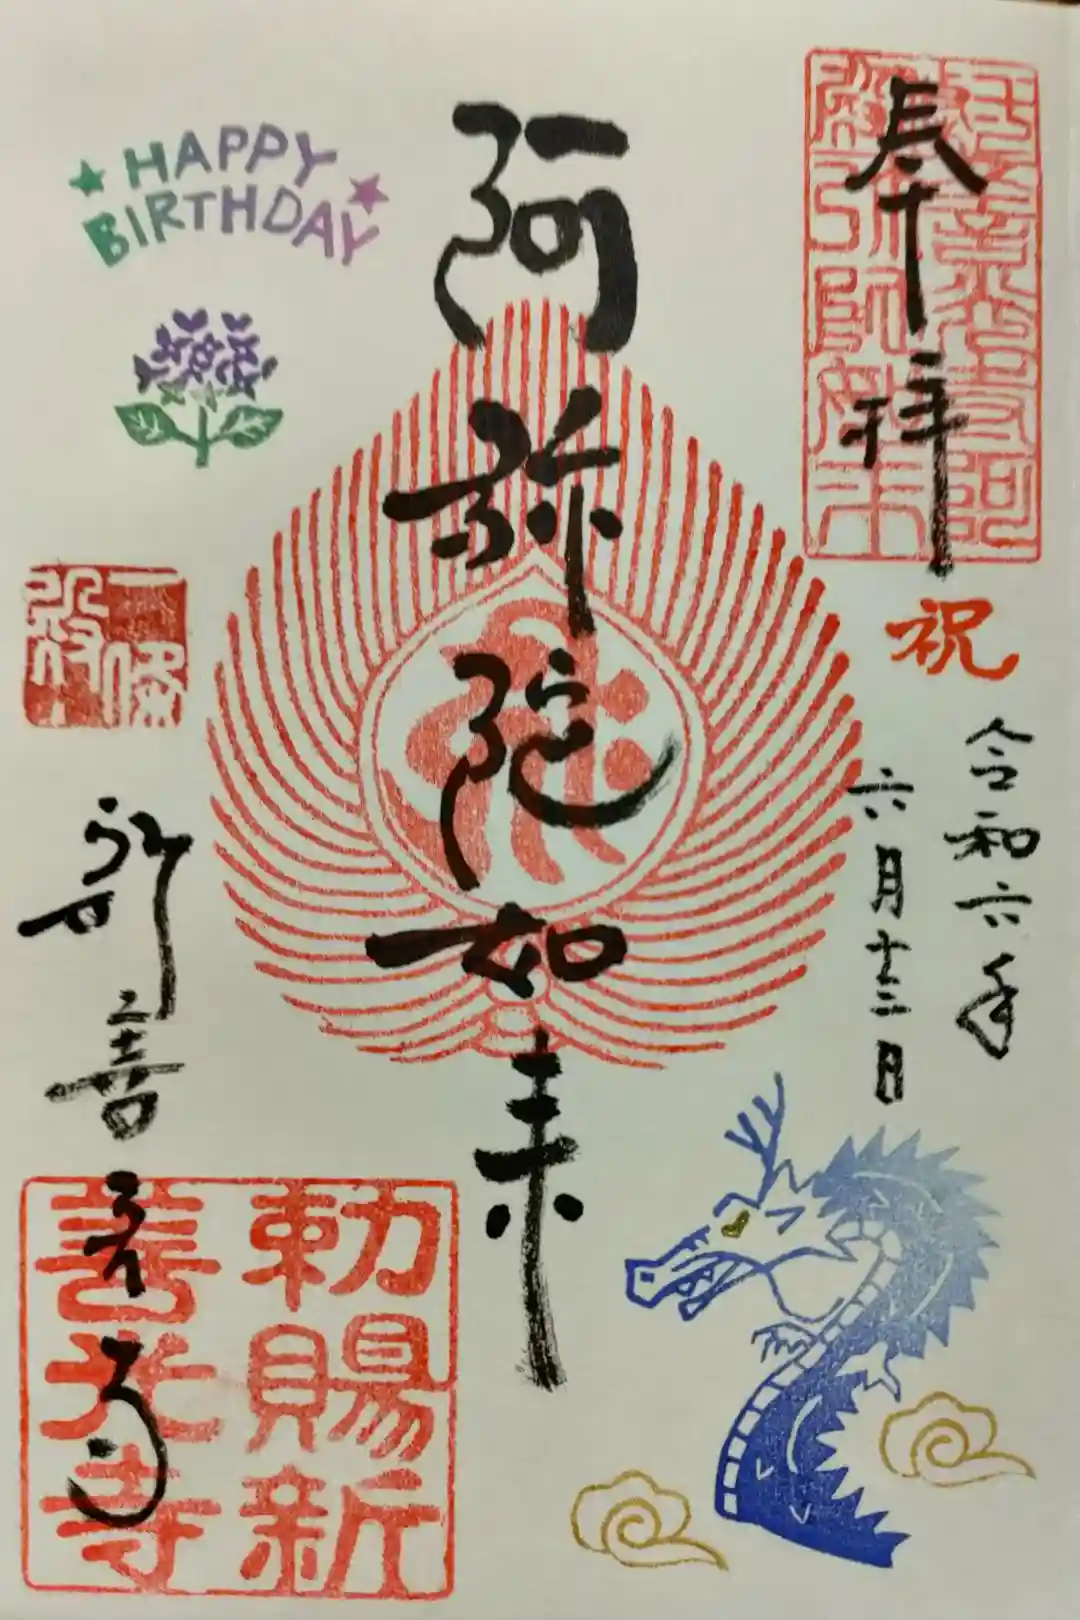 奉拝
祝
令和六年
六月十三日
阿弥陀如来
HAPPY
BIRTHDAY
新善光寺
勅賜新
善光寺